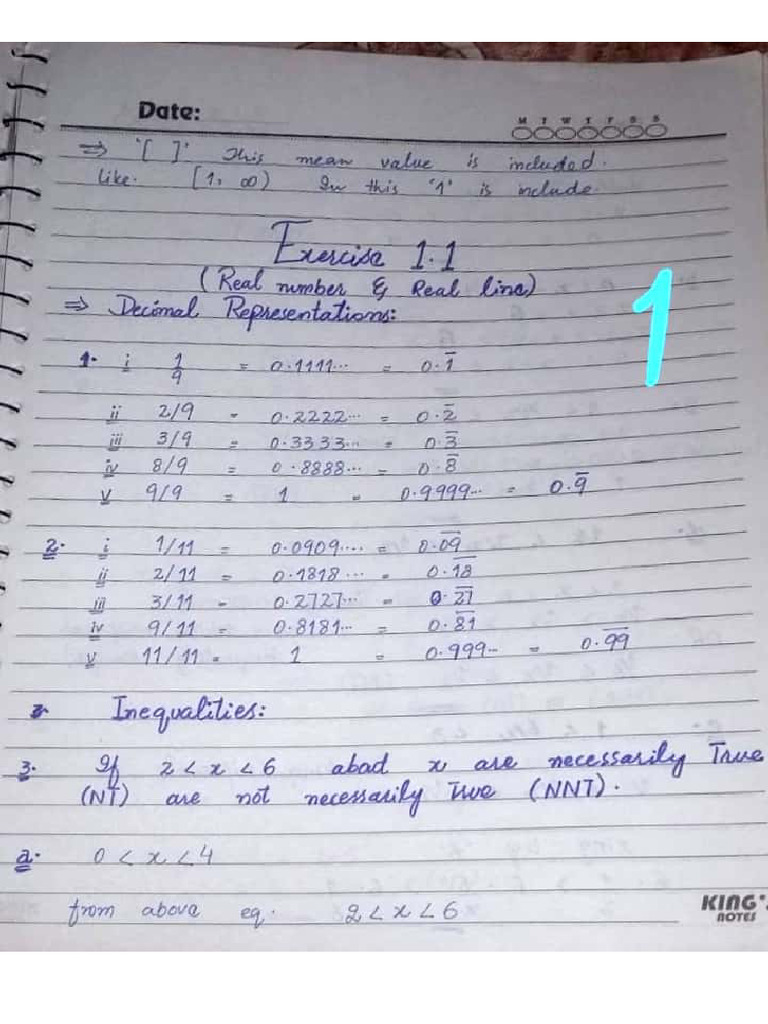 Date:
M T W T F S S
⇒ '[ ]' This mean value is included.
like. [1, ∞) In this '1' is include.
Exercise 1.1
(Real number & Real line)
1
⇒ Decimal Representations:
1. i 1/9 = 0.1111... = 0.1̅
ii 2/9 = 0.2222... = 0.2̅
iii 3/9 = 0.3333... = 0.3̅
iv 8/9 = 0.8888... = 0.8̅
v 9/9 = 1 = 0.9999... = 0.9̅
2. i 1/11 = 0.0909.... = 0.0̅9̅
ii 2/11 = 0.1818... = 0.1̅8̅
iii 3/11 = 0.2727... = 0.2̅7̅
iv 9/11 = 0.8181... = 0.8̅1̅
v 11/11 = 1 = 0.999.. = 0.9̅9̅
Inequalities:
3. If 2 < x < 6 abad x are necessarily True
(NT) are not necessarily True (NNT).
a. 0 < x < 4
from above eq. 2 < x < 6
KING'
NOTES